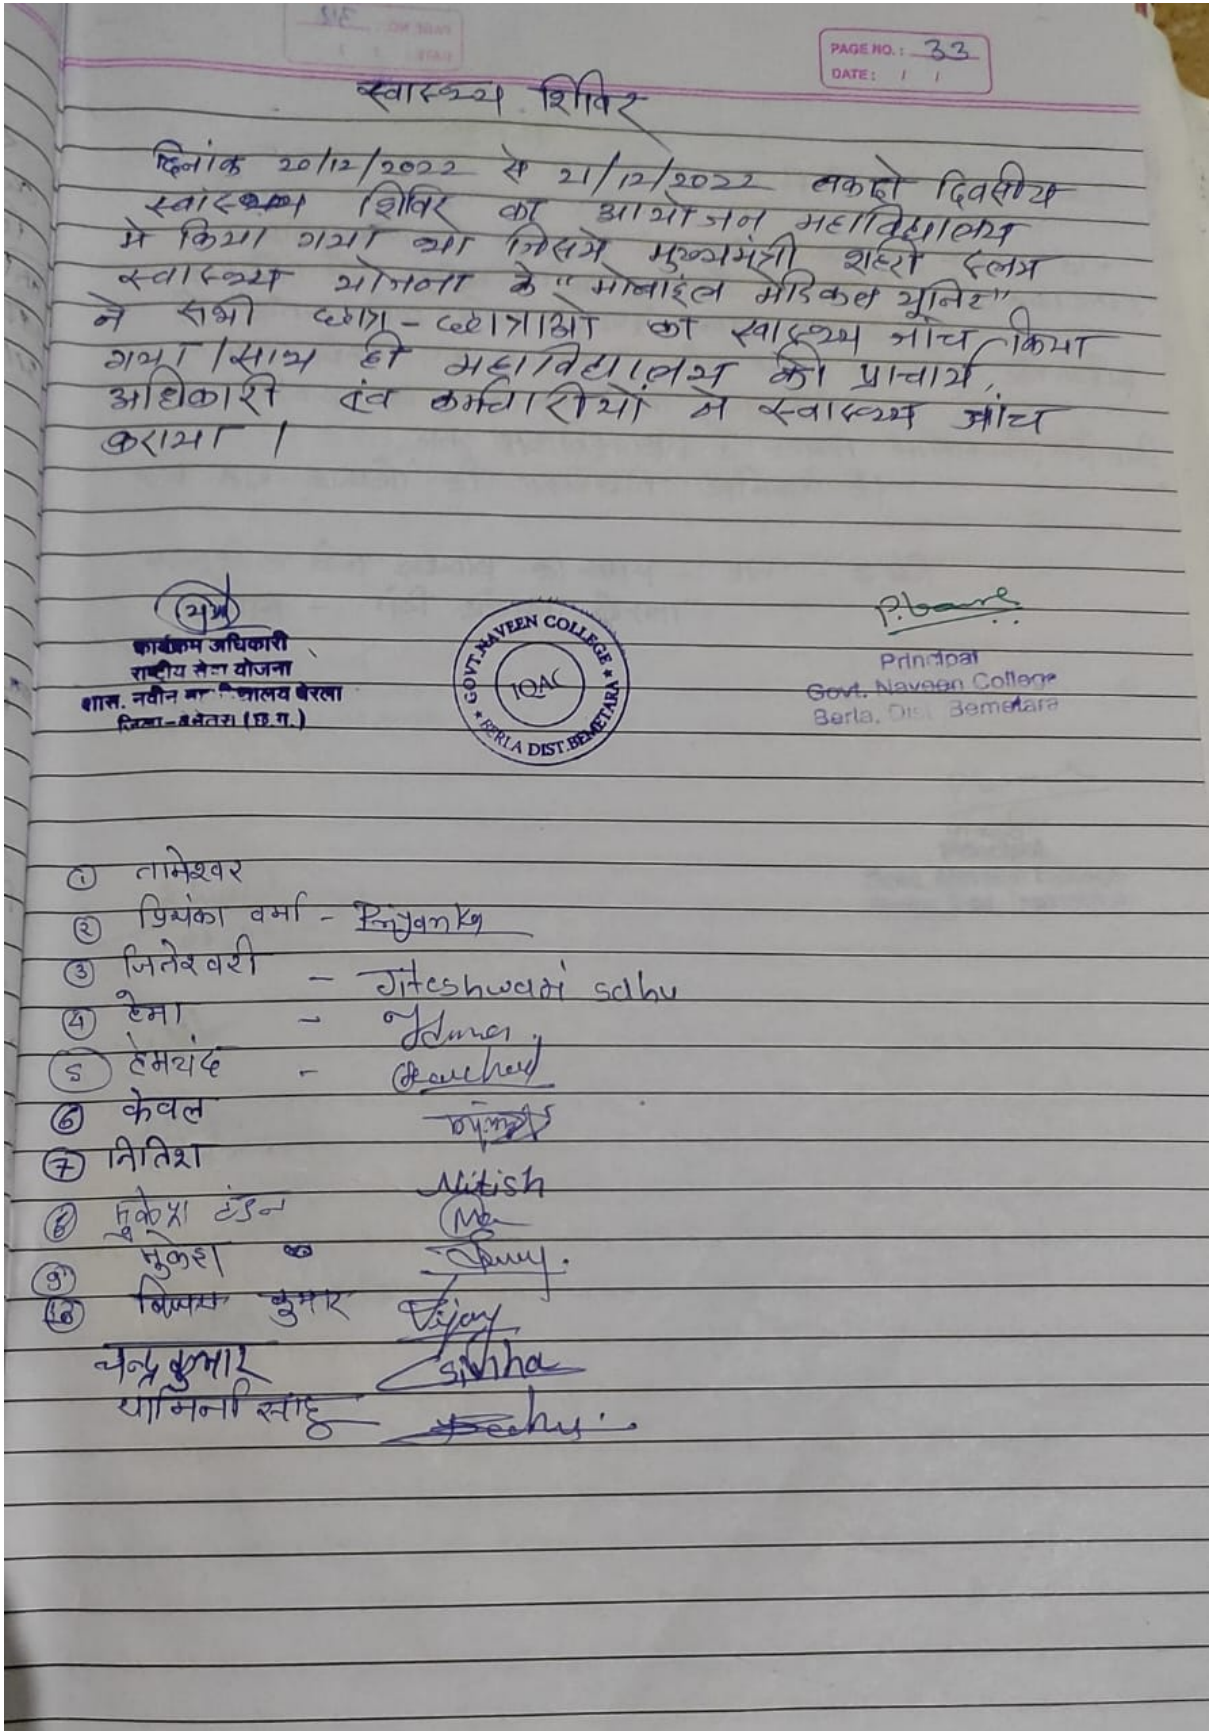 PAGE NO.: 33
DATE: / /
स्वास्थ्य शिविर
दिनांक 20/12/2022 से 21/12/2022 तक दो दिवसीय
स्वास्थ्य शिविर का आयोजन महाविद्यालय
मे किया गया था जिसमे मुख्यमंत्री शहरी स्लम
स्वास्थ्य योजना के "मोबाईल मेडिकल यूनिट"
ने सभी छात्र-छात्राओ का स्वास्थ्य जांच किया
गया। साथ ही महाविद्यालय की प्राचार्य,
अधिकारी एंव कर्मचारीयों ने स्वास्थ्य जांच
कराया।
कार्यक्रम अधिकारी
राष्ट्रीय सेवा योजना
शास. नवीन बेरला
जिला-बेमेतरा (छ.ग.)
GOVT. NAVEEN COLLEGE ★ BERLA DIST. BEMETARA ★
IQAC
Principal
Govt. Naveen College
Berla, Dist. Bemetara
① तामेश्वर
② प्रियंका वर्मा - Priyanka
③ जितेश्वरी - Jiteshwari sahu
④ हेमा -
⑤ हेमचंद -
⑥ केवल
⑦ नितिश Nitish
⑧ मुकेश टंडन
⑨ मुकेश
⑩ विजय कुमार Vijay
चन्द्रकुमार sinha
यामिनी साहू Sahu